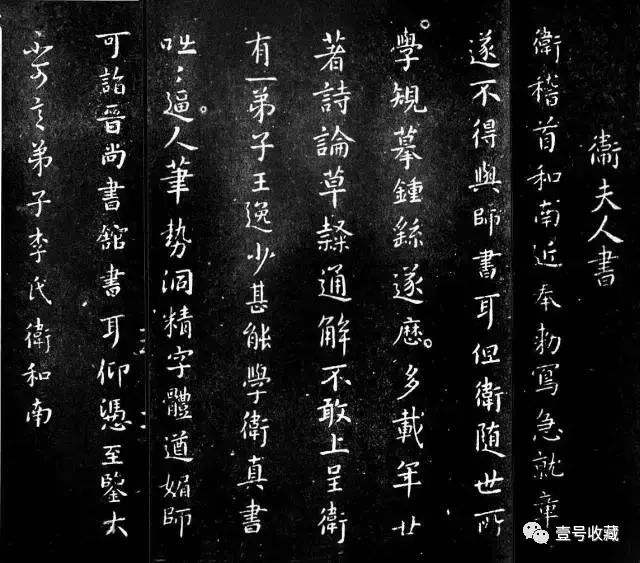 衛夫人書
衛稽首和南近奉勑寫急就章
遂不得與師書耳但衛隨世所
學規摹鍾繇遂歷多載年廿
著詩論草隸通解不敢上呈衛
有一弟子王逸少甚能學衛真書
咄〻逼人筆勢洞精字體遒媚師
可詣晉尚書舘書耳仰憑至鑒大
不可言弟子李氏衛和南
壹号收藏